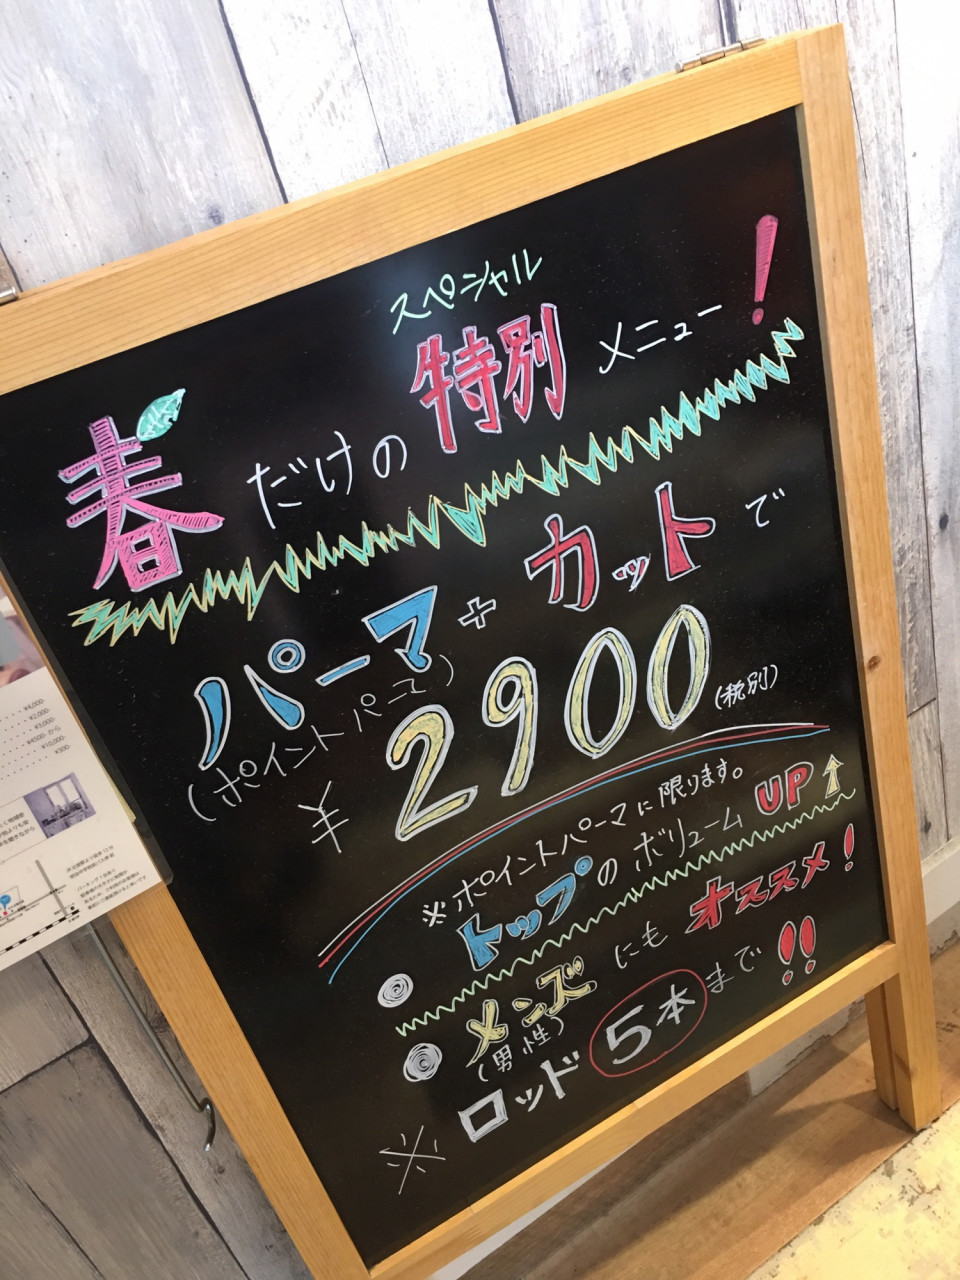 スペシャル
春だけの特別メニュー!
パーマ+カットで
(ポイントパーマ)
¥2900(税別)
※ポイントパーマに限ります。
トップのボリュームUP↑
メンズにもオススメ!
(男性)
※ロッド5本まで!!
¥4,000-
¥2,000-
¥3,000-
¥4500-から
¥10,000-